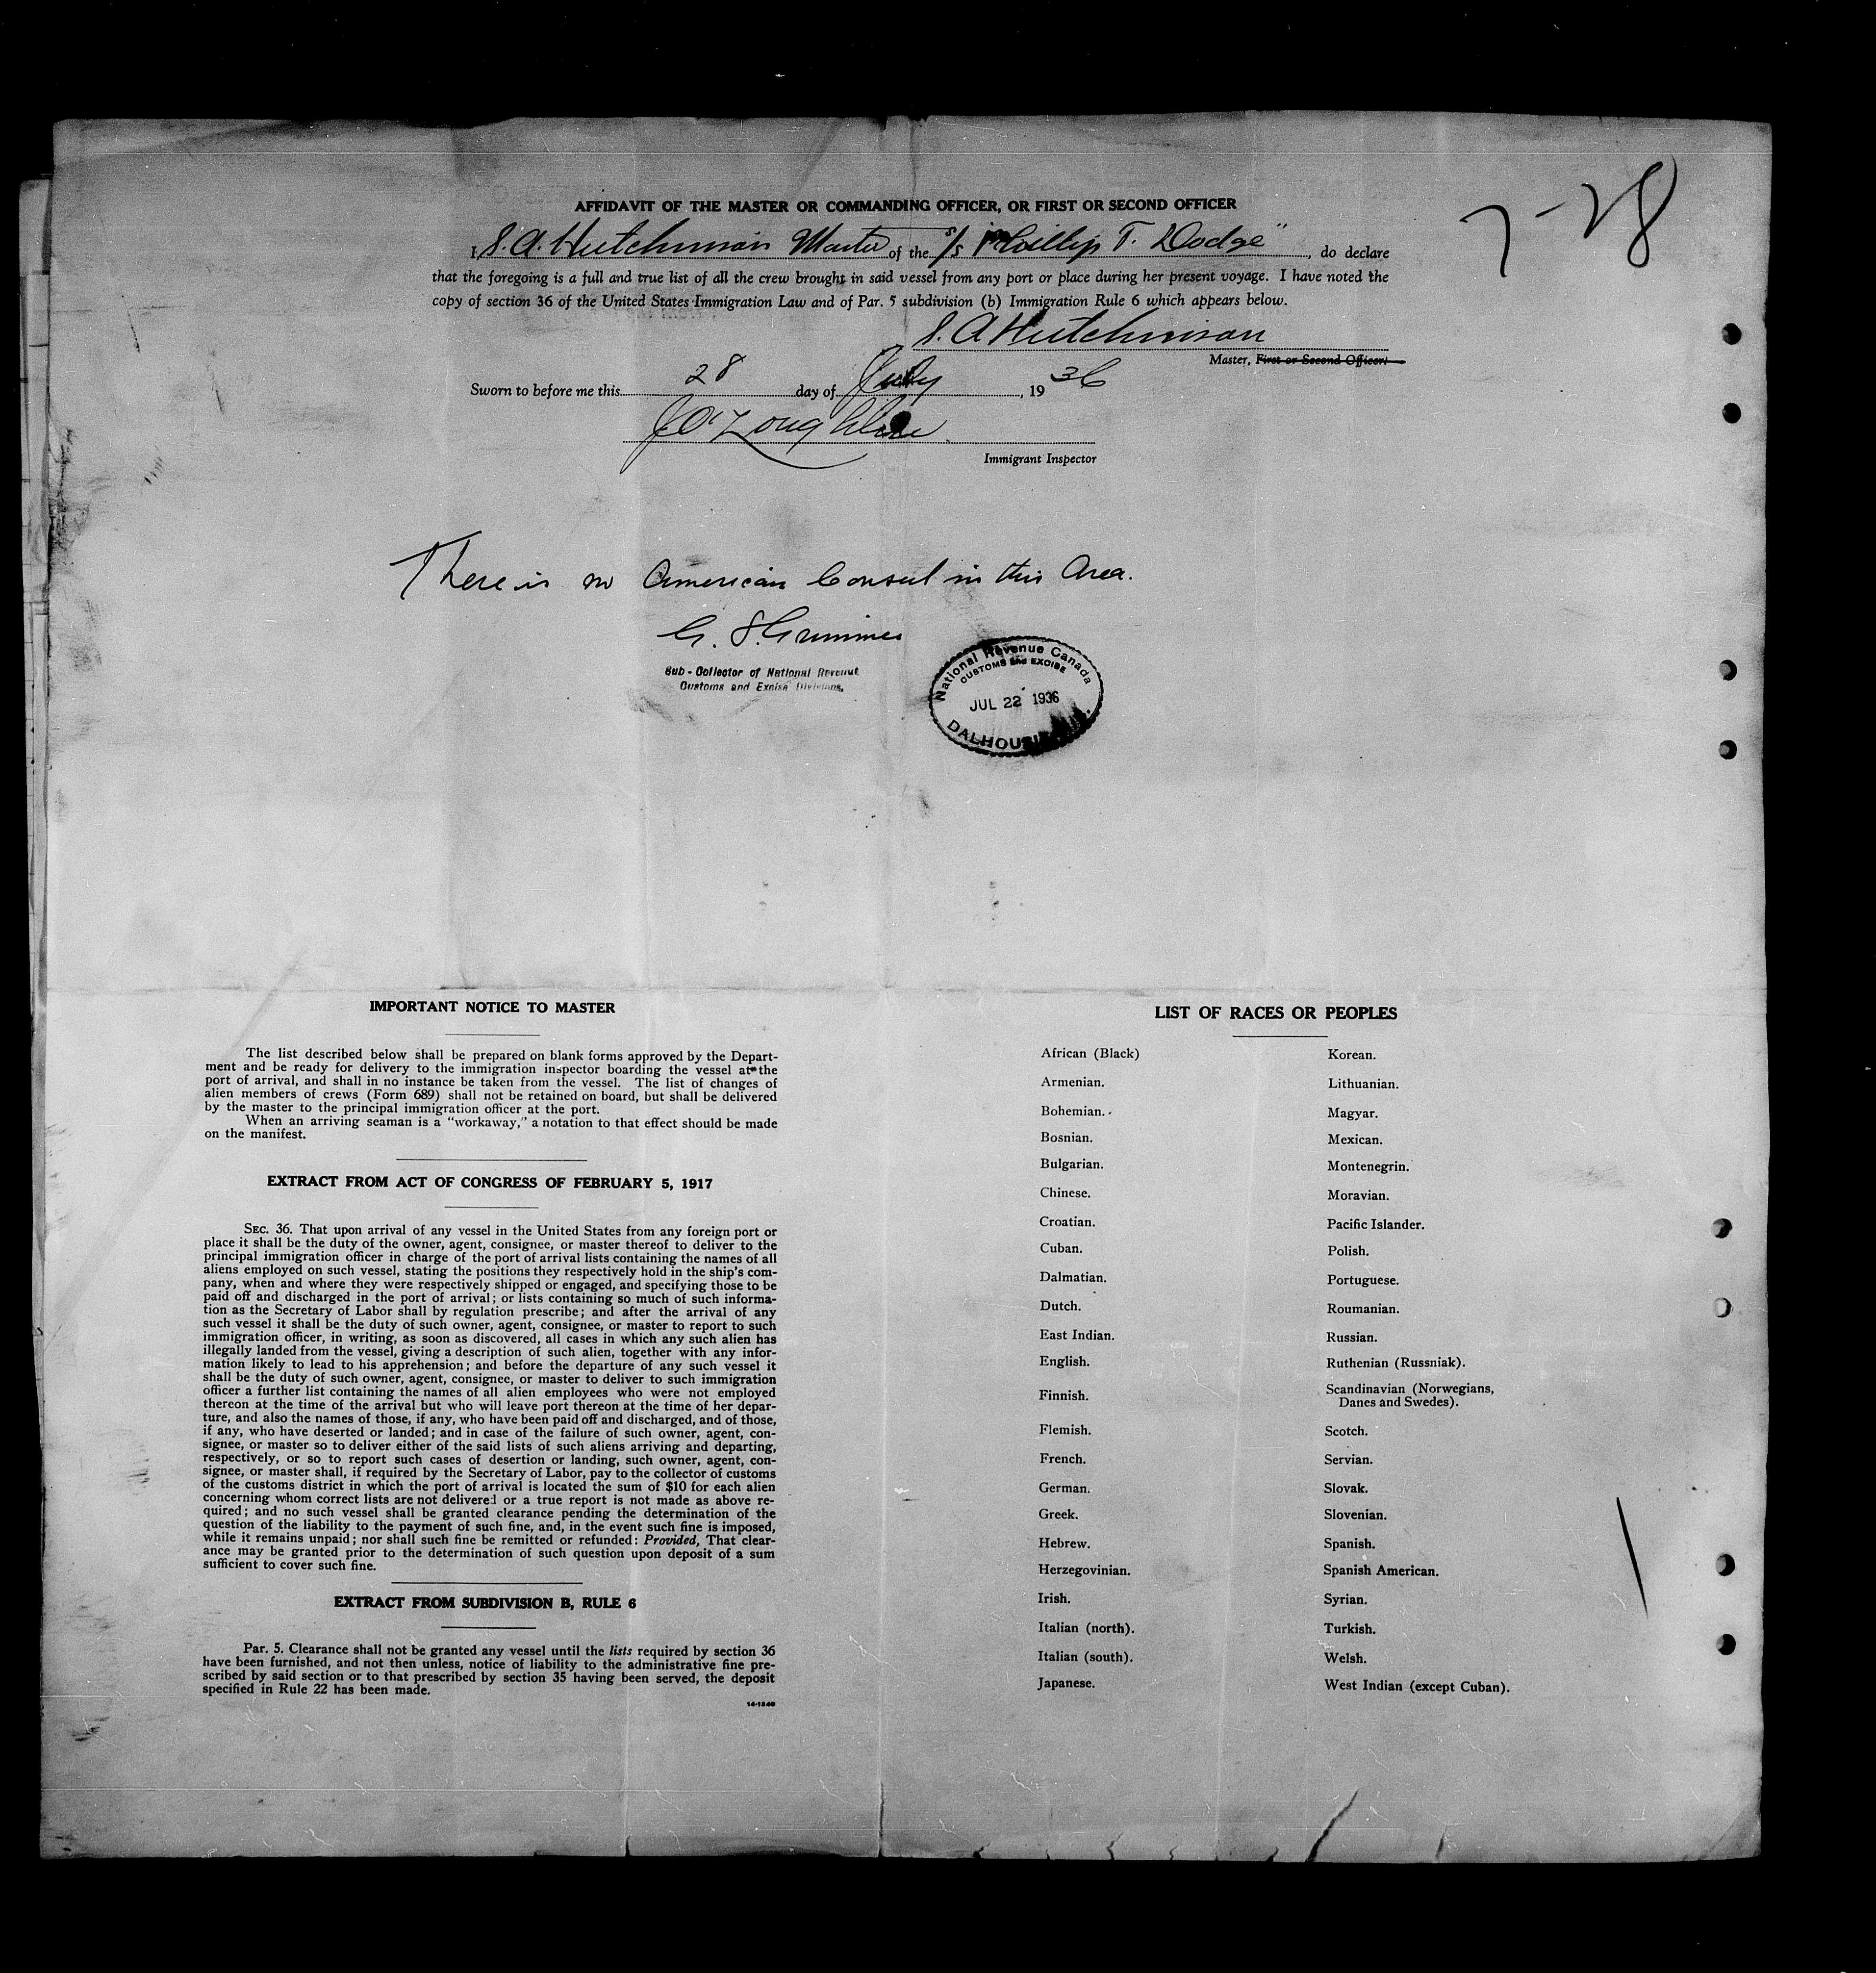 7-28
AFFIDAVIT OF THE MASTER OR COMMANDING OFFICER, OR FIRST OR SECOND OFFICER
I, S. A. Hutchinson Master of the s/s "Phillip T. Dodge", do declare
that the foregoing is a full and true list of all the crew brought in said vessel from any port or place during her present voyage. I have noted the
copy of section 36 of the United States Immigration Law and of Par. 5 subdivision (b) Immigration Rule 6 which appears below.
S. A Hutchinson
Master, First or Second Officer.
Sworn to before me this 28 day of July, 1936
Immigrant Inspector
There is no American Consul in this Area.
Sub-Collector of National Revenue
Customs and Excise Divisions.
National Revenue Canada
CUSTOMS and EXCISE
JUL 22 1936
IMPORTANT NOTICE TO MASTER
The list described below shall be prepared on blank forms approved by the Depart-
ment and be ready for delivery to the immigration inspector boarding the vessel at the
port of arrival, and shall in no instance be taken from the vessel. The list of changes of
alien members of crews (Form 689) shall not be retained on board, but shall be delivered
by the master to the principal immigration officer at the port.
When an arriving seaman is a "workaway," a notation to that effect should be made
on the manifest.
EXTRACT FROM ACT OF CONGRESS OF FEBRUARY 5, 1917
SEC. 36. That upon arrival of any vessel in the United States from any foreign port or
place it shall be the duty of the owner, agent, consignee, or master thereof to deliver to the
principal immigration officer in charge of the port of arrival lists containing the names of all
aliens employed on such vessel, stating the positions they respectively hold in the ship's com-
pany, when and where they were respectively shipped or engaged, and specifying those to be
paid off and discharged in the port of arrival; or lists containing so much of such informa-
tion as the Secretary of Labor shall by regulation prescribe; and after the arrival of any
such vessel it shall be the duty of such owner, agent, consignee, or master to report to such
immigration officer, in writing, as soon as discovered, all cases in which any such alien has
illegally landed from the vessel, giving a description of such alien, together with any infor-
mation likely to lead to his apprehension; and before the departure of any such vessel it
shall be the duty of such owner, agent, consignee, or master to deliver to such immigration
officer a further list containing the names of all alien employees who were not employed
thereon at the time of the arrival but who will leave port thereon at the time of her depar-
ture, and also the names of those, if any, who have been paid off and discharged, and of those,
if any, who have deserted or landed; and in case of the failure of such owner, agent, con-
signee, or master so to deliver either of the said lists of such aliens arriving and departing,
respectively, or so to report such cases of desertion or landing, such owner, agent, con-
signee, or master shall, if required by the Secretary of Labor, pay to the collector of customs
of the customs district in which the port of arrival is located the sum of $10 for each alien
concerning whom correct lists are not delivered or a true report is not made as above re-
quired; and no such vessel shall be granted clearance pending the determination of the
question of the liability to the payment of such fine, and, in the event such fine is imposed,
while it remains unpaid; nor shall such fine be remitted or refunded: Provided, That clear-
ance may be granted prior to the determination of such question upon deposit of a sum
sufficient to cover such fine.
EXTRACT FROM SUBDIVISION B, RULE 6
Par. 5. Clearance shall not be granted any vessel until the lists required by section 36
have been furnished, and not then unless, notice of liability to the administrative fine pre-
scribed by said section or to that prescribed by section 35 having been served, the deposit
specified in Rule 22 has been made.
LIST OF RACES OR PEOPLES
African (Black)
Armenian.
Bohemian.
Bosnian.
Bulgarian.
Chinese.
Croatian.
Cuban.
Dalmatian.
Dutch.
East Indian.
English.
Finnish.
Flemish.
French.
German.
Greek.
Hebrew.
Herzegovinian.
Irish.
Italian (north).
Italian (south).
Japanese.
Korean.
Lithuanian.
Magyar.
Mexican.
Montenegrin.
Moravian.
Pacific Islander.
Polish.
Portuguese.
Roumanian.
Russian.
Ruthenian (Russniak).
Scandinavian (Norwegians,
Danes and Swedes).
Scotch.
Servian.
Slovak.
Slovenian.
Spanish.
Spanish American.
Syrian.
Turkish.
Welsh.
West Indian (except Cuban).